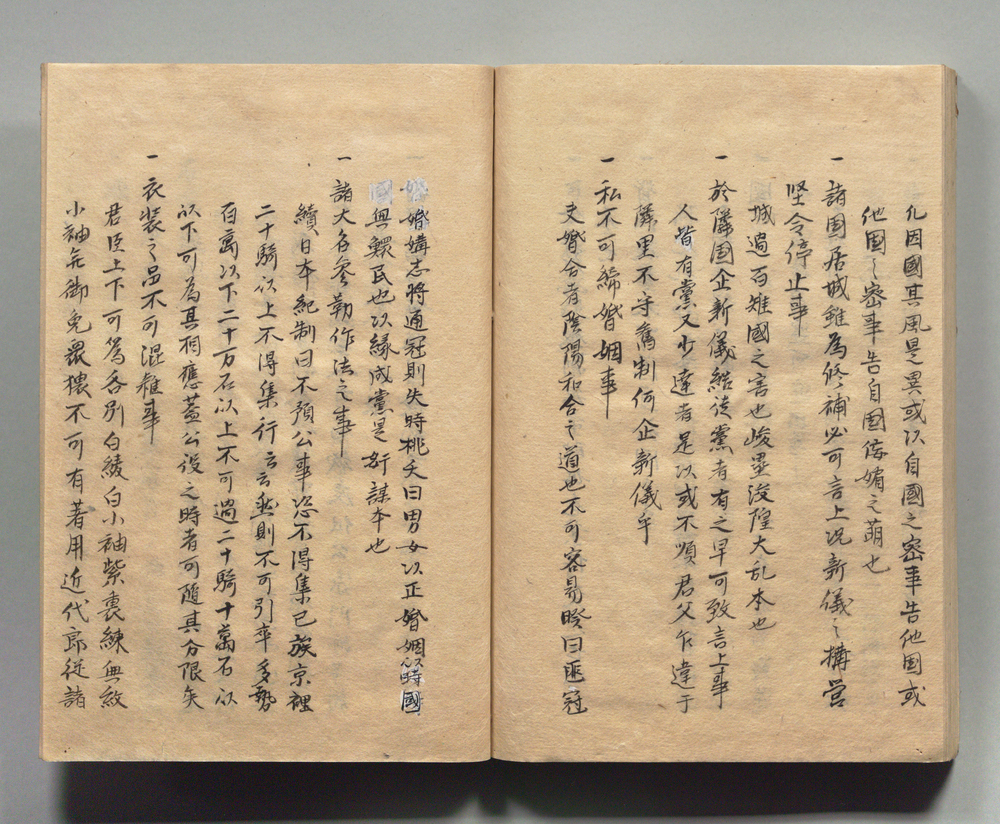 凢因國其風是異或以自國之密事告他国或
他国之密事告自国侫媚之萌也
一 諸国居城雖為修補必可言上况新儀之搆営
堅令停止事
城過百雉國之害也峻壘浚隍大乱本也
一 於隣国企新儀結徒黨者有之早可致言上事
人皆有黨又少達者是以或不順君父乍違于
隣里不守舊制何企新儀乎
一 私不可締婚姻事
夫婚合者陰陽和合之道也不可容易睽曰匪冦
婚媾志将通冠則失時桃夭曰男女以正婚姻以時國
無鰥民也以縁成黨是姧謀本也
一 諸大名参勤作法之事
續日本紀制曰不預公事恣不得集己族京裡
二十騎以上不得集行云云然則不可引率多勢
百萬以下二十万石以上不可過二十騎十萬石以
以下可為其相應蓋公役之時者可随其分限矣
一 衣装之品不可混雑事
君臣上下可為各別白綾白小袖紫裏練無紋
小袖無御免衆猥不可有著用近代郎従諸